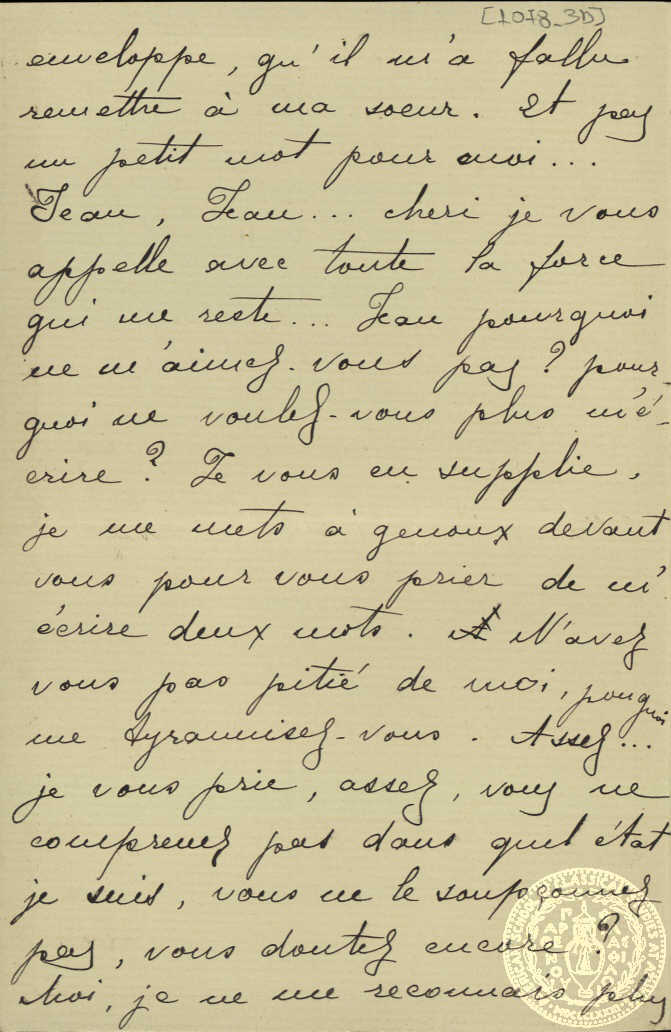 [1078_3b]
enveloppe, qu'il m'a fallu
remettre à ma soeur. Et pas
un petit mot pour moi...
Jean, Jean... cheri je vous
appelle avec toute la force
qui me reste... Jean pourquoi
ne m'aimez-vous pas? pour-
quoi ne voulez-vous plus m'é-
crire? Je vous en supplie,
je me mets à genoux devant
vous pour vous prier de m'
écrire deux mots. N'avez
vous pas pitié de moi, pourquoi
me tyrannisez-vous. Assez...
je vous prie, assez, vous ne
comprenez pas dans quel état
je suis, vous ne le soupçonnez
pas, vous doutez encore?
Moi, je ne me reconnais plus